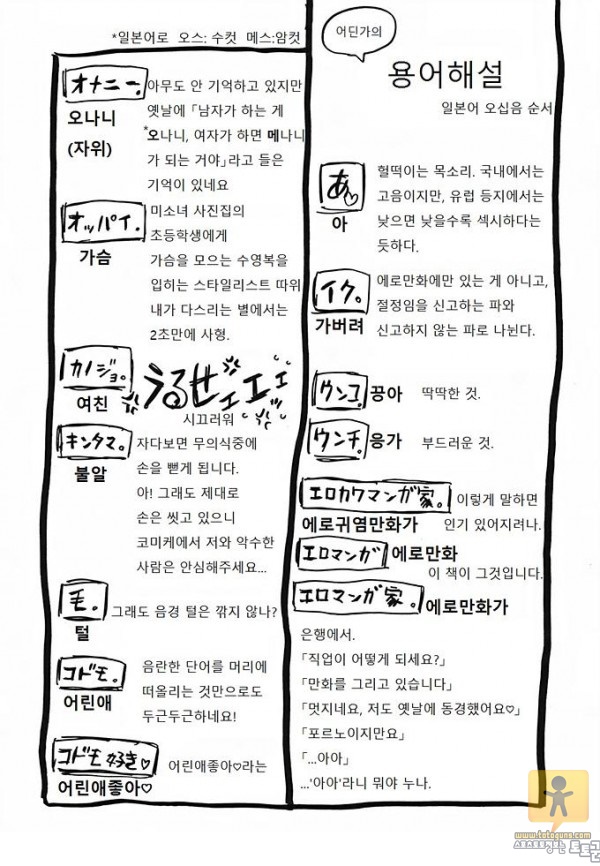 어딘가의
용어해설
일본어 오십음 순서
あ♡
아
헐떡이는 목소리. 국내에서는
고음이지만, 유럽 등지에서는
낮으면 낮을수록 섹시하다는
듯하다.
イク。
가버려
에로만화에만 있는 게 아니고,
절정임을 신고하는 파와
신고하지 않는 파로 나뉜다.
ウンコ.
끙아
딱딱한 것.
ウンチ.
응가
부드러운 것.
エロカワマンガ家。
에로귀염만화가
이렇게 말하면
인기 있어지려나.
エロマンガ
에로만화
이 책이 그것입니다.
エロマンガ家。
에로만화가
은행에서.
「직업이 어떻게 되세요?」
「만화를 그리고 있습니다」
「멋지네요, 저도 옛날에 동경했어요♡」
「포르노이지만요」
「...아아」
...'아아'라니 뭐야 누나.
*일본어로 오스: 수컷 메스:암컷
オナニー。
오나니
(자위)
아무도 안 기억하고 있지만
옛날에 「남자가 하는 게
*오나니, 여자가 하면 메나니
가 되는 거야」라고 들은
기억이 있네요
オッパイ.
가슴
미소녀 사진집의
초등학생에게
가슴을 모으는 수영복을
입히는 스타일리스트 따위
내가 다스리는 별에서는
2초만에 사형.
カノジョ。
여친
うるせェエェェッ
시끄러워
キンタマ。
불알
자다보면 무의식중에
손을 뻗게 됩니다.
아! 그래도 제대로
손은 씻고 있으니
코미케에서 저와 악수한
사람은 안심해주세요...
毛。
털
그래도 음경 털은 깎지 않나?
コドモ。
어린애
음란한 단어를 머리에
떠올리는 것만으로도
두근두근하네요!
コドモ好き♡
어린애좋아♡
어린애좋아♡라는
www.totoguns.com